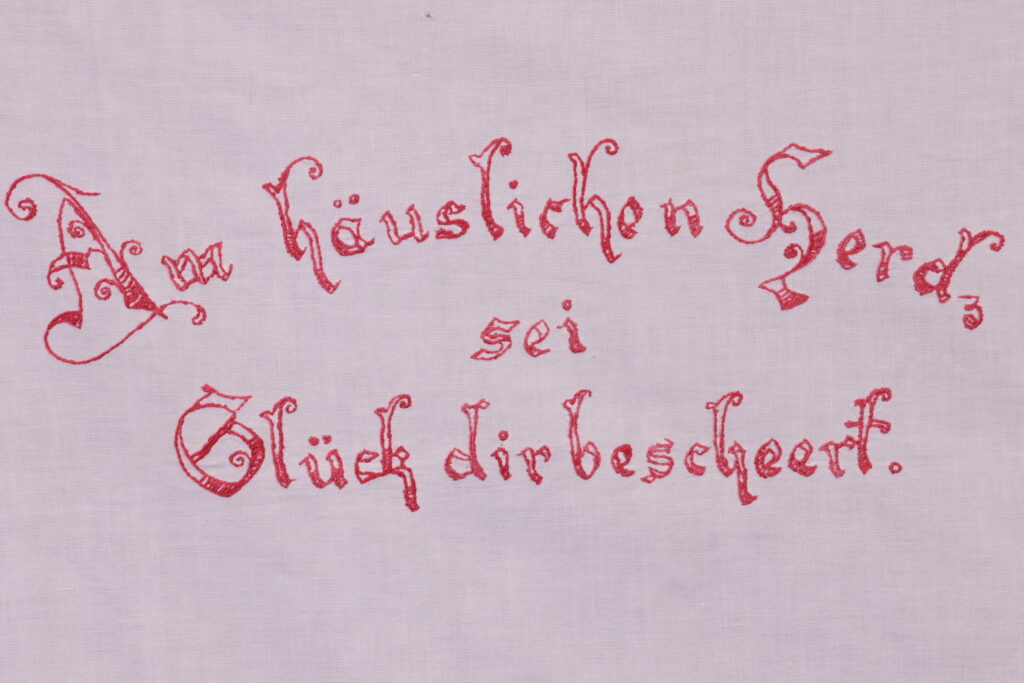 Am häuslichen Herd
sei
Glück dir bescheert.